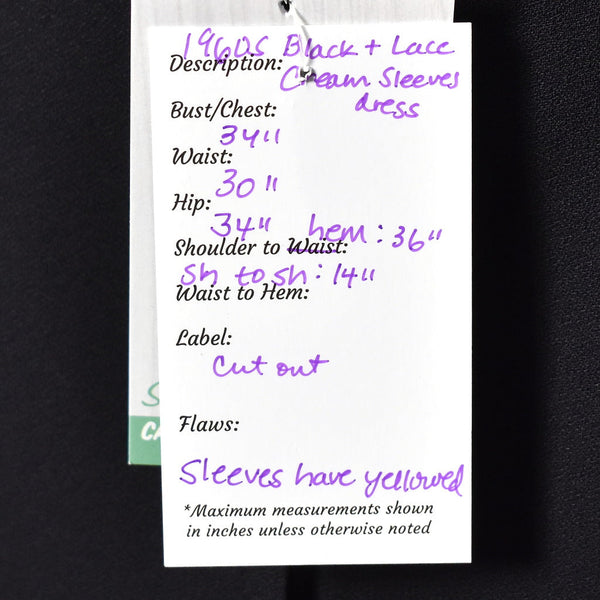 1960s Black + Lace
Description:
Cream Sleeves
dress
Bust/Chest:
34"
Waist:
30"
Hip:
34" hem: 36"
Shoulder to Waist:
Sh to sh: 14"
Waist to Hem:
Label:
Cut out
Flaws:
Sleeves have yellowed
*Maximum measurements shown
in inches unless otherwise noted